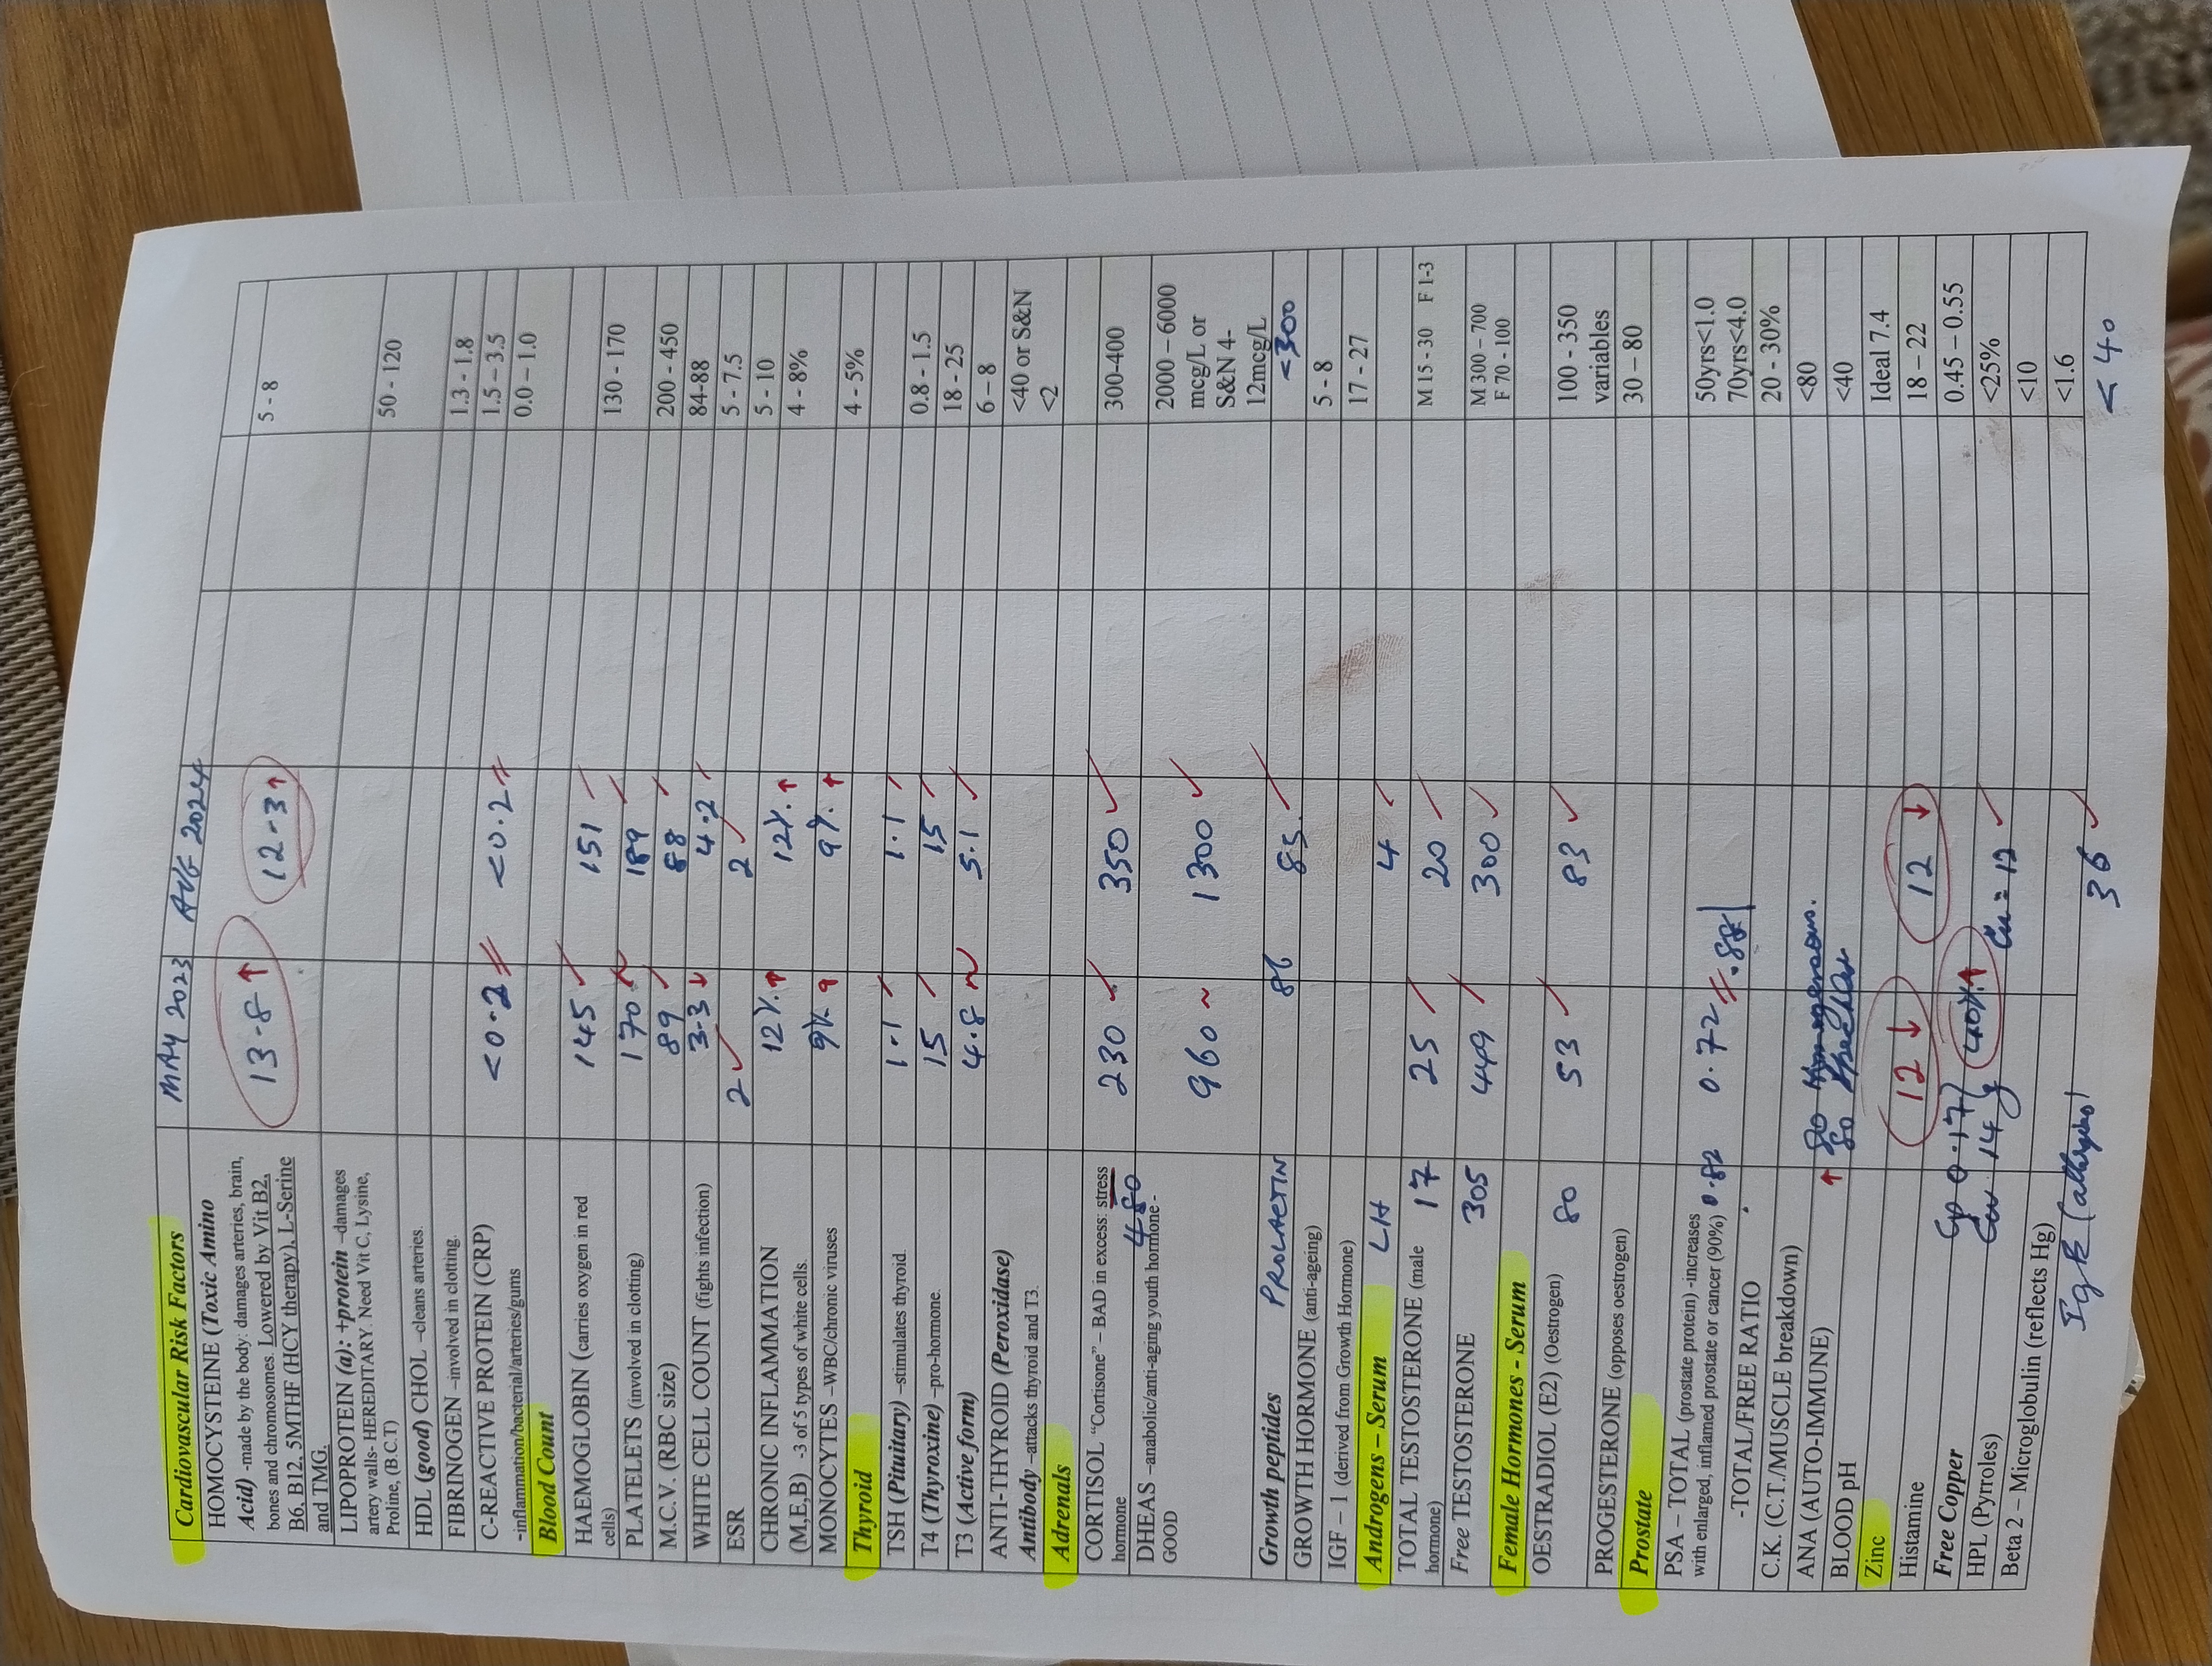 MAY 2023 AUG 2024
Cardiovascular Risk Factors
HOMOCYSTEINE (Toxic Amino 13.8 ↑ 12.3 ↑ 5 - 8
Acid) -made by the body: damages arteries, brain,
bones and chromosomes. Lowered by Vit B2,
B6, B12, 5MTHF (HCY therapy), L-Serine
and TMG.
LIPOPROTEIN (a): +protein –damages 50 - 120
artery walls- HEREDITARY. Need Vit C, Lysine,
Proline, (B.C.T)
HDL (good) CHOL –cleans arteries. 1.3 - 1.8
FIBRINOGEN –involved in clotting. 1.5 – 3.5
C-REACTIVE PROTEIN (CRP) <0.2 <0.2 0.0 – 1.0
-inflammation/bacterial/arteries/gums
Blood Count
HAEMOGLOBIN (carries oxygen in red 145 151 130 - 170
cells)
PLATELETS (involved in clotting) 170 ~ 189 200 - 450
M.C.V. (RBC size) 89 88 84-88
WHITE CELL COUNT (fights infection) 3.3 ↓ 4.2 5 - 7.5
ESR 2 ✓ 2 ✓ 5 - 10
CHRONIC INFLAMMATION 12%. ↑ 12%. ↑ 4 - 8%
(M,E,B) -3 of 5 types of white cells.
MONOCYTES –WBC/chronic viruses 9%. ↑ 9%. ↑ 4 - 5%
Thyroid
TSH (Pituitary) –stimulates thyroid. 1.1 1.1 0.8 - 1.5
T4 (Thyroxine) –pro-hormone. 15 15 18 - 25
T3 (Active form) 4.8 ~ 5.1 ✓ 6 – 8
ANTI-THYROID (Peroxidase) <40 or S&N
Antibody –attacks thyroid and T3. <2
Adrenals
CORTISOL "Cortisone" – BAD in excess: stress 230 350 ✓ 300-400
hormone 480
DHEAS –anabolic/anti-aging youth hormone - 960 ~ 1300 ✓ 2000 – 6000
GOOD mcg/L or
S&N 4-
12mcg/L
Growth peptides PROLACTIN 86 85. <300
GROWTH HORMONE (anti-ageing) 5 - 8
IGF – 1 (derived from Growth Hormone) 17 - 27
Androgens – Serum LH 4
TOTAL TESTOSTERONE (male 17 25 20 M 15 - 30 F 1-3
hormone)
Free TESTOSTERONE 305 449 300 M 300 – 700
F 70 - 100
Female Hormones - Serum
OESTRADIOL (E2) (Oestrogen) 80 53 83 ✓ 100 - 350
variables
PROGESTERONE (opposes oestrogen) 30 – 80
Prostate
PSA – TOTAL (prostate protein) -increases 50yrs<1.0
with enlarged, inflamed prostate or cancer (90%) 0.82 0.72 70yrs<4.0
-TOTAL/FREE RATIO 20 - 30%
C.K. (C.T./MUSCLE breakdown) <80
ANA (AUTO-IMMUNE) ↑ 80 <40
BLOOD pH Ideal 7.4
Zinc 12 ↓ 12 ↓ 18 – 22
Histamine 0.45 – 0.55
Free Copper Cp 0.17 40%. ↑ <25%
HPL (Pyrroles) Cu 14 Cu = 12 <10
Beta 2 – Microglobulin (reflects Hg) <1.6
IgE 36 ✓ <40